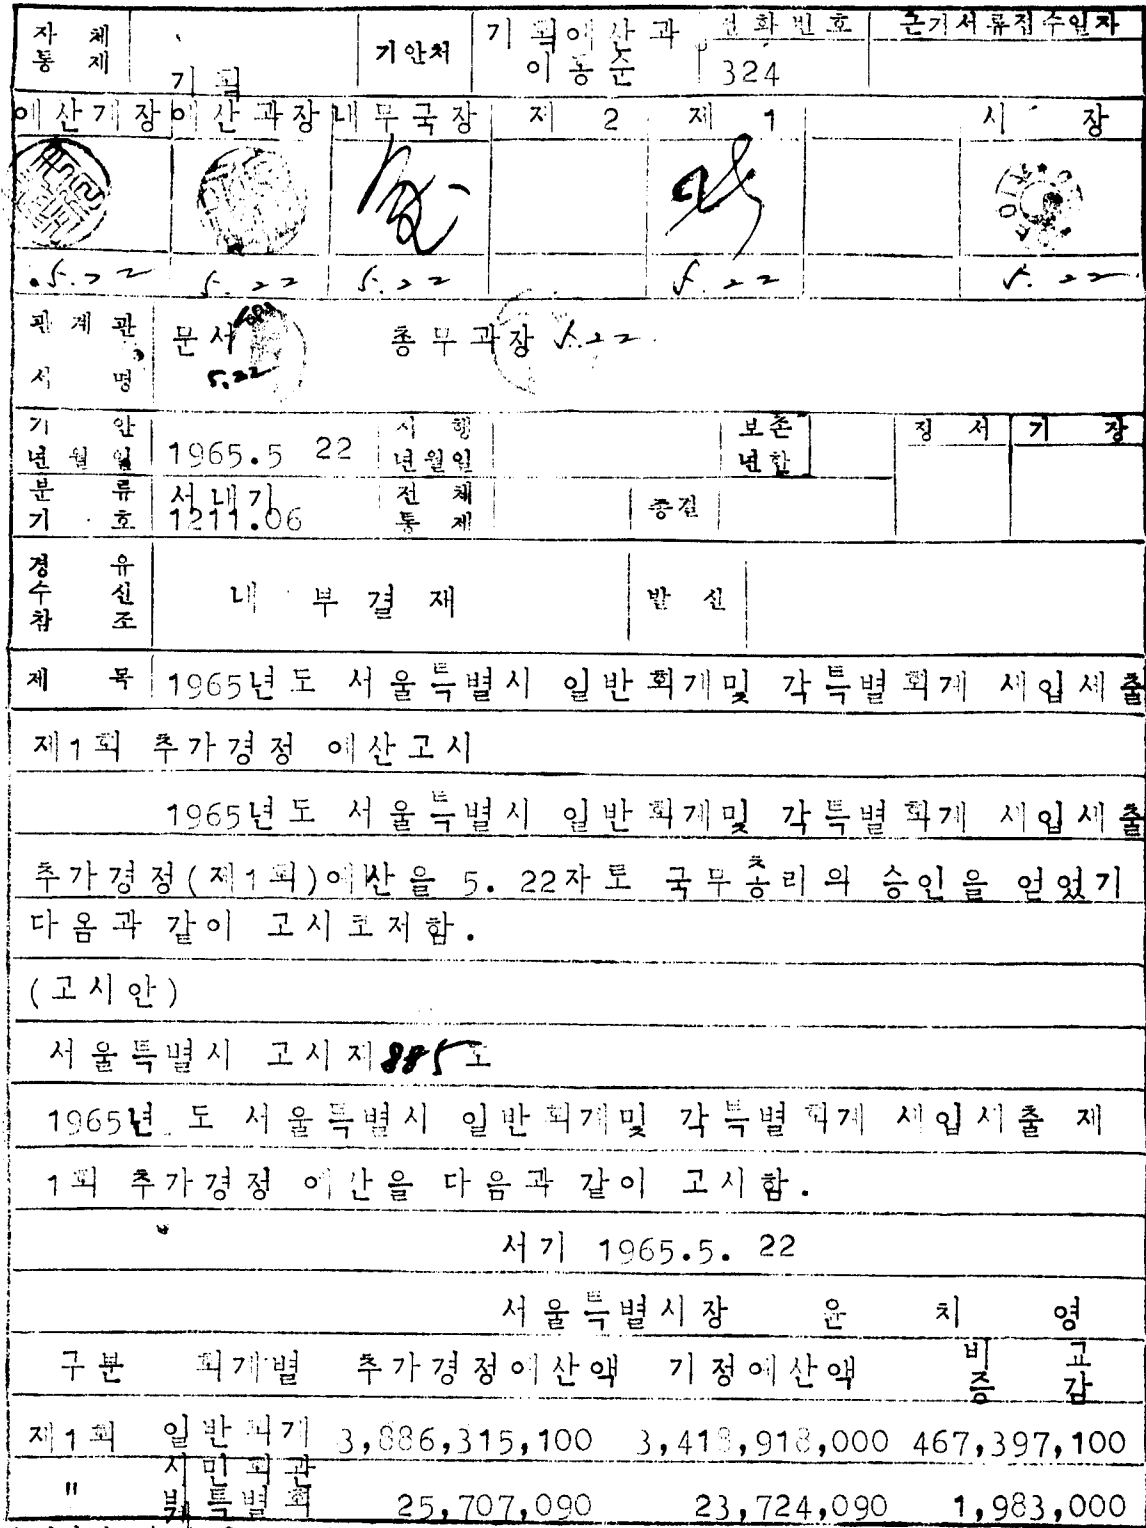 자 체 기안처 기획예산과 전화번호 근거서류접수일자
통 제 기획 이동준 324
예산계장 예산과장 내무국장 제 2 제 1 시 장
5.22 5.22 5.22 5.22 5.22
관계관 문서 총무과장 5.22
서 명 5.22
기 안 시 행 보존 정 서 기 장
년월일 1965.5 22 년월일 년한
분 류 서내기 전 체 종결
기 호 1211.06 통 제
경 유
수 신 내 부 결 재 발 신
참 조
제 목 1965년도 서울특별시 일반회계및 각특별회계 세입세출
제1회 추가경정 예산고시
1965년도 서울특별시 일반회계및 각특별회계 세입세출
추가경정(제1회)예산을 5. 22자로 국무총리의 승인을 얻었기
다음과 같이 고시코저함.
(고시안)
서울특별시 고시제885호
1965년 도 서울특별시 일반회계및 각특별회계 세입세출 제
1회 추가경정 예산을 다음과 같이 고시함.
서기 1965.5. 22
서울특별시장 윤 치 영
구분 회계별 추가경정예산액 기정예산액 비 교
증 감
제1회 일반회계 3,886,315,100 3,418,918,000 467,397,100
시민회관
" 특별회 25,707,090 23,724,090 1,983,000